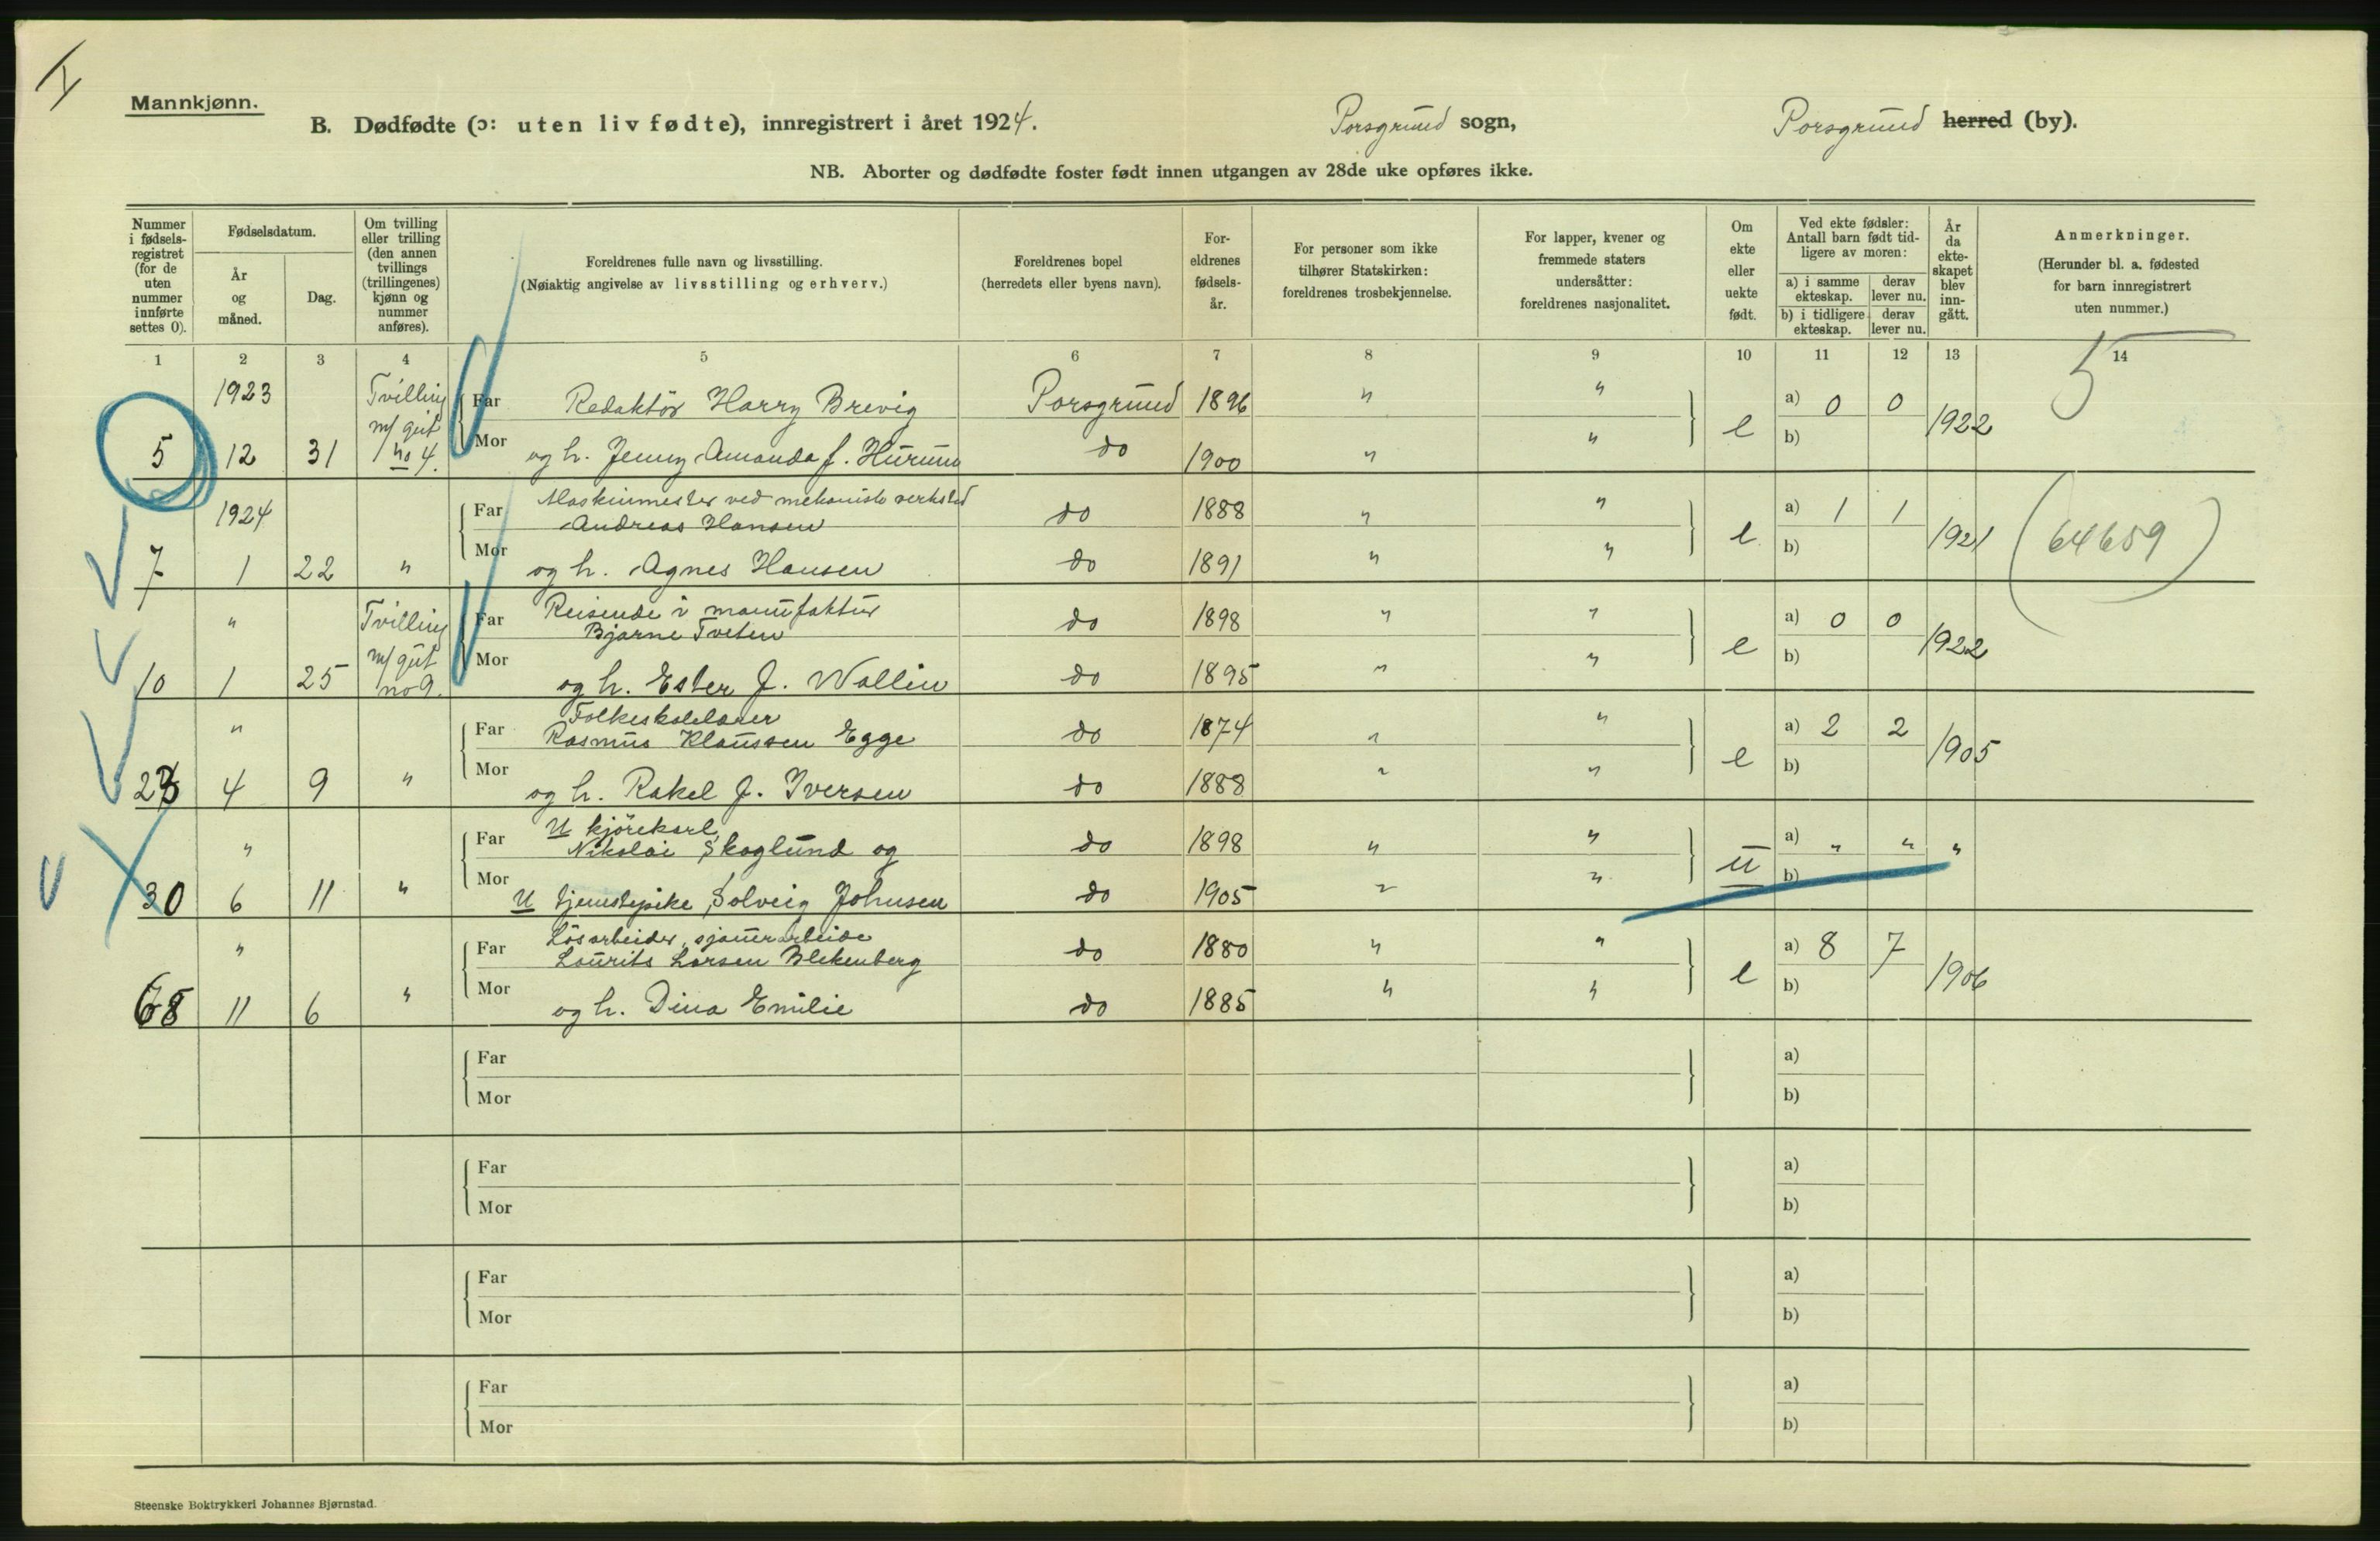 I
Mannkjønn.
B. Dødfødte (ɔ: uten liv fødte), innregistrert i året 1924. Porsgrund sogn, Porsgrund herred (by).
NB. Aborter og dødfødte foster født innen utgangen av 28de uke opføres ikke.
Nummer i fødsels-registret (for de uten nummer innførte settes 0).
Fødselsdatum.
År og måned.
Dag.
Om tvilling eller trilling (den annen tvillings (trillingenes) kjønn og nummer anføres).
Foreldrenes fulle navn og livsstilling.
(Nøiaktig angivelse av livsstilling og erhverv.)
Foreldrenes bopel
(herredets eller byens navn).
For-eldrenes fødsels-år.
For personer som ikke tilhører Statskirken: foreldrenes trosbekjennelse.
For lapper, kvener og fremmede staters undersåtter: foreldrenes nasjonalitet.
Om ekte eller uekte født.
Ved ekte fødsler: Antall barn født tid-ligere av moren:
a) i samme ekteskap. derav lever nu.
b) i tidligere ekteskap. derav lever nu.
År da ekte-skapet blev inn-gått.
Anmerkninger.
(Herunder bl. a. fødested for barn innregistrert uten nummer.)
1 2 3 4 5 6 7 8 9 10 11 12 13 14
5
1923 Tvilling m/ gut no 4. Far Redaktör Harry Brevig Porsgrund 1896 " " e a) 0 0 1922
5 12 31 Mor og h. Jenny Amanda f. Hurum do 1900 " " b)
1924 Far Maskinmester ved mekaniske verksted
Andreas Hansen do 1888 " " e a) 1 1 1921 (64659)
7 1 22 " Mor og h. Agnes Hansen do 1891 " " b)
" Tvilling m/ gut no 9. Far Reisende i manufaktur
Bjarne Tveten do 1898 " " e a) 0 0 1922
10 1 25 Mor og h. Ester f. Wallin do 1895 " " b)
" Far Folkeskolelærer
Rasmus Klaussen Egge do 1874 " " e a) 2 2 1905
23 4 9 " Mor og h. Rakel f. Iversen do 1888 " " b)
" Far U kjörekarl,
Nikolai Skoglund og do 1898 " " u a) " " "
30 6 11 " Mor U tjenestepike Solveig Johnsen do 1905 " " b)
" Far Lösarbeider, sjauerarbeide
Laurits Larsen Blekenberg do 1880 " " e a) 8 7 1906
68 11 6 " Mor og h. Dina Emilie do 1885 " " b)
Far a)
Mor b)
Far a)
Mor b)
Far a)
Mor b)
Far a)
Mor b)
Steenske Boktrykkeri Johannes Bjørnstad.